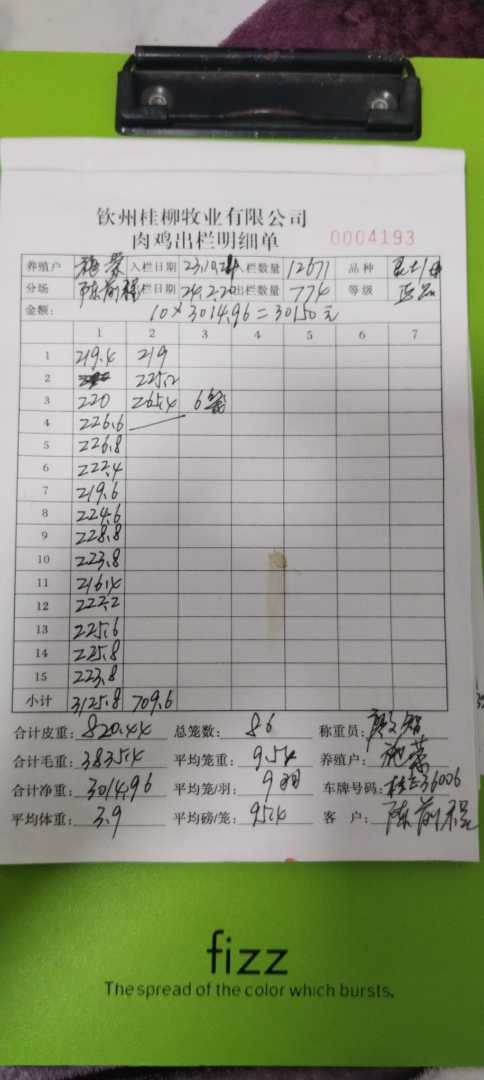 钦州桂柳牧业有限公司
肉鸡出栏明细单 0004193
养殖户 施蒙 入栏日期 23,10,24 入栏数量 12671 品种
分场 陈前程 出栏日期 24,2,20 出栏数量 774 等级 正品
金额: 10×3014.96=30150元
1 2 3 4 5 6 7
1 219.4 219
2 225.2
3 220 265.4 6笼
4 226.6
5 226.8
6 222.4
7 219.6
8 224.6
9 228.8
10 223.8
11 216.4
12 222.2
13 225.6
14 225.8
15 223.8
小计 3125.8 709.6
合计皮重: 820.44 总笼数: 86 称重员:
合计毛重: 3835.4 平均笼重: 9.54 养殖户: 施蒙
合计净重: 3014.96 平均笼/羽: 9羽 车牌号码: 36006
平均体重: 3.9 平均磅/笼: 95.4 客户: 陈前程
fizz
The spread of the color which bursts.